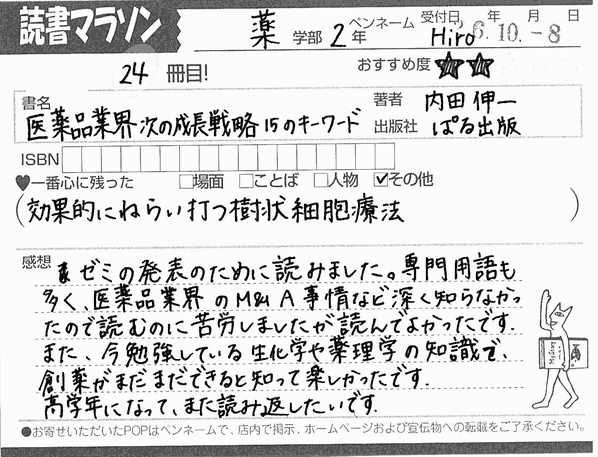 読書マラソン
薬 学部 2年 ペンネーム Hiro 受付日 年 月 日
6.10.-8
24 冊目!
おすすめ度 ★★
書名 医薬品業界 次の成長戦略 15のキーワード
著者 内田伸一
出版社 ぱる出版
ISBN
♥一番心に残った □場面 □ことば □人物 ☑その他
(効果的にねらい打つ樹状細胞療法)
感想 ゼミの発表のために読みました。専門用語も
多く、医薬品業界のM&A事情など深く知らなかっ
たので読むのに苦労しましたが読んでよかったです.
また、今勉強している生化学や薬理学の知識で、
創薬がまだまだできると知って楽しかったです.
高学年になって、また読み返したいです.
●お寄せいただいたPOPはペンネームで、店内で掲示、ホームページおよび宣伝物への転載をご了承ください。